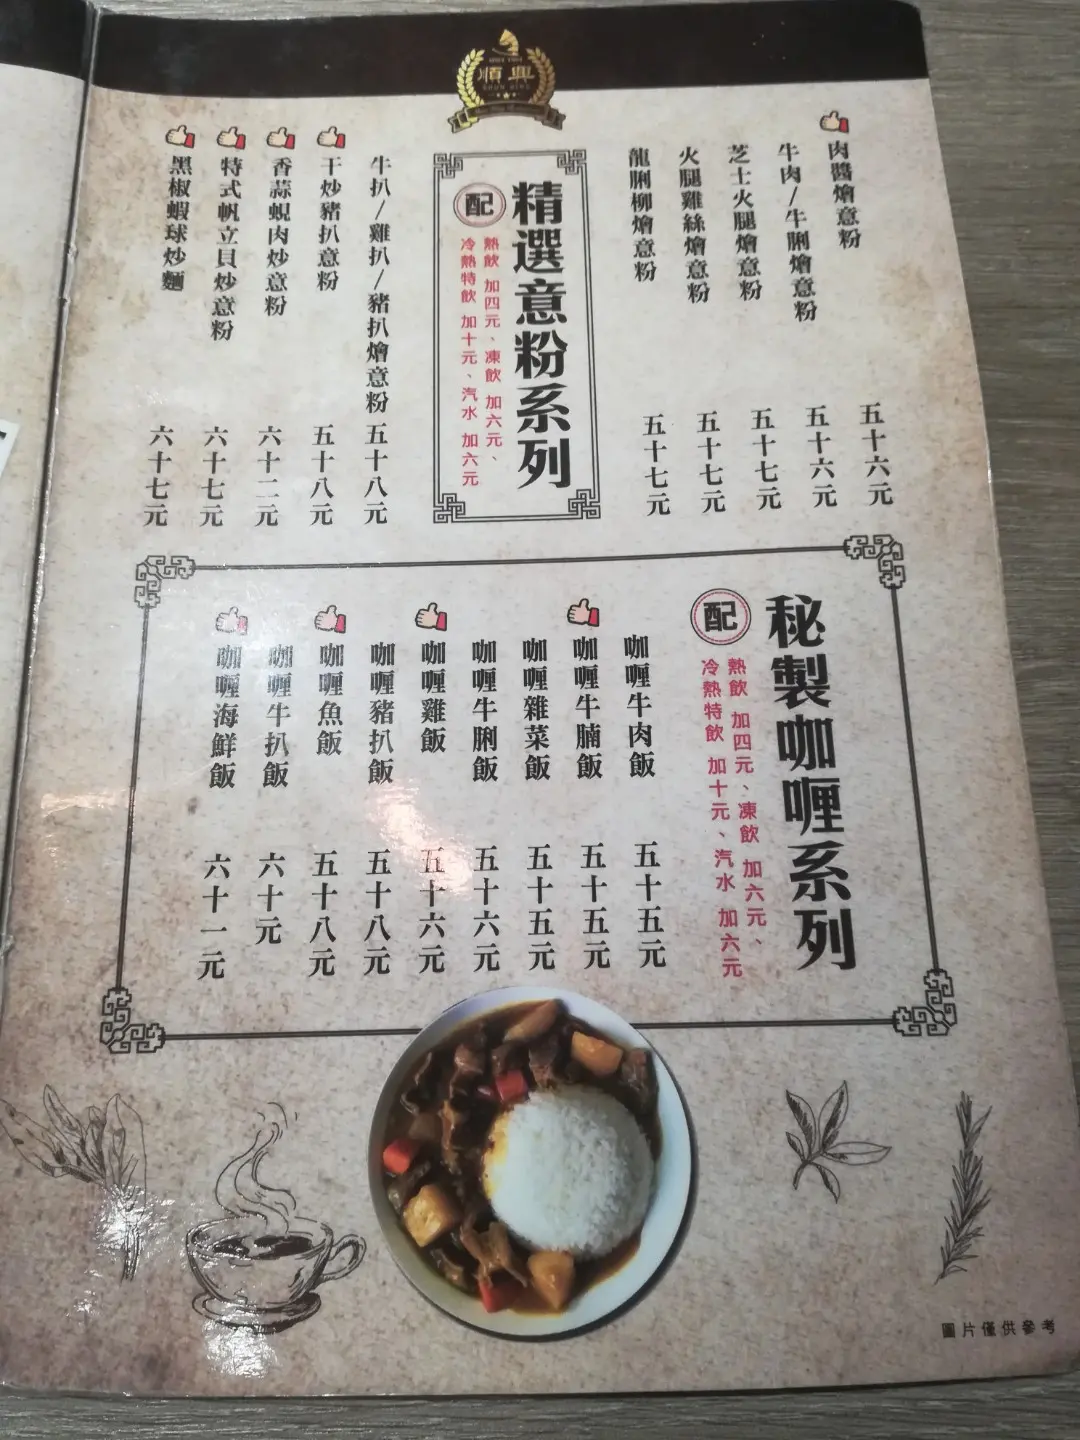 順興
肉醬燴意粉 五十六元
牛肉/牛脷燴意粉 五十六元
芝士火腿燴意粉 五十七元
火腿雞絲燴意粉 五十七元
龍脷柳燴意粉 五十七元
精選意粉系列
配
熱飲 加四元、凍飲 加六元、
冷熱特飲 加十元、汽水 加六元
牛扒/雞扒/豬扒燴意粉 五十八元
干炒豬扒意粉 五十八元
香蒜蜆肉炒意粉 六十二元
特式帆立貝炒意粉 六十七元
黑椒蝦球炒麵 六十七元
秘製咖喱系列
配
熱飲 加四元、凍飲 加六元、
冷熱特飲 加十元、汽水 加六元
咖喱牛肉飯 五十五元
咖喱牛腩飯 五十五元
咖喱雜菜飯 五十五元
咖喱牛脷飯 五十六元
咖喱雞飯 五十六元
咖喱豬扒飯 五十八元
咖喱魚飯 五十八元
咖喱牛扒飯 六十元
咖喱海鮮飯 六十一元
圖片僅供參考